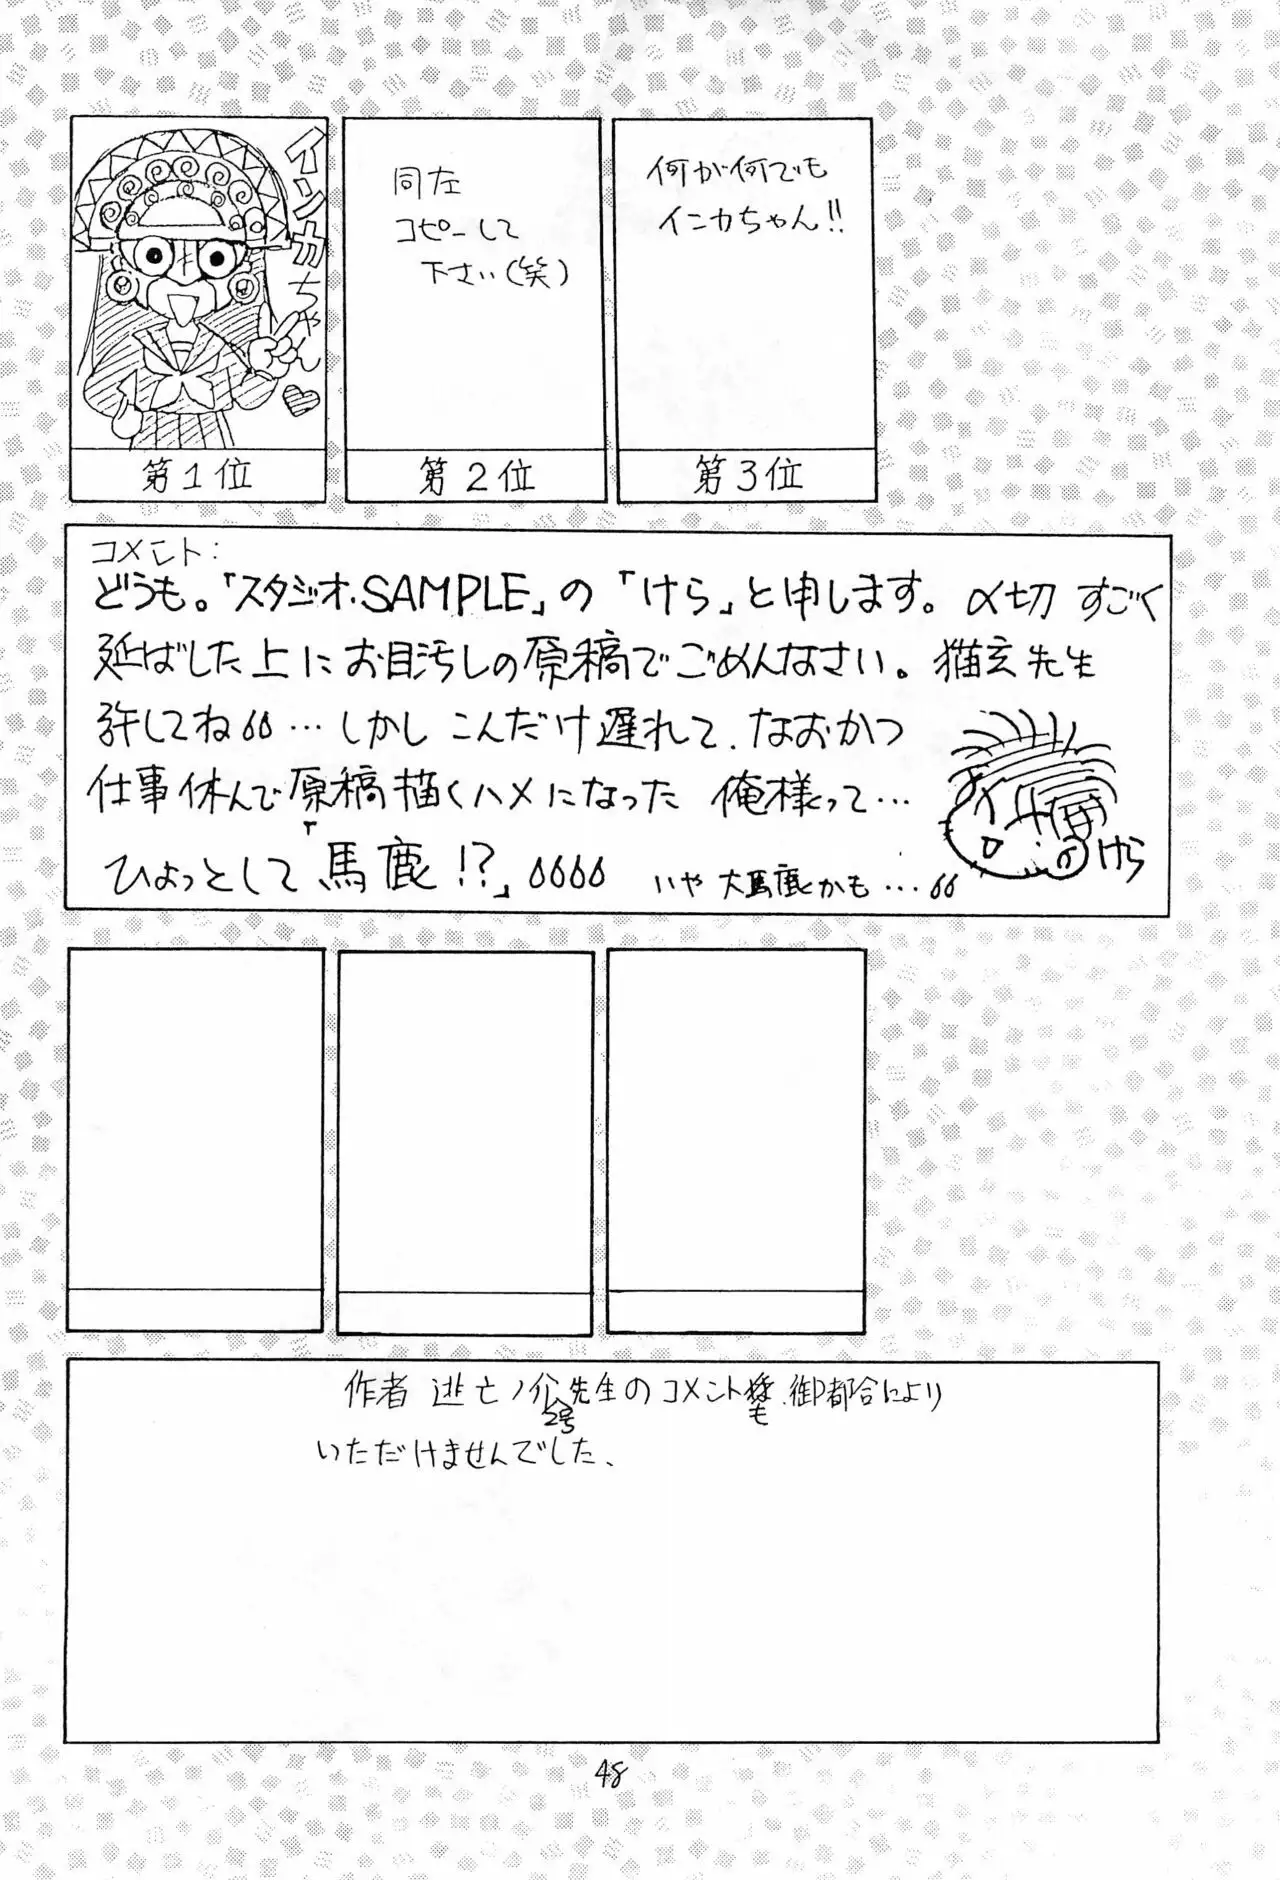 インカちゃん♡
第1位
同左
コピーして
下さい(笑)
第2位
何が何でも
インカちゃん!!
第3位
コメント:
どうも。「スタジオ・SAMPLE」の「けら」と申します。〆切 すごく
延ばした上にお目汚しの原稿でごめんなさい。猫玄先生
許してね…しかし こんだけ遅れて、なおかつ
仕事休んで原稿描くハメになった 俺様って…
ひょっとして「馬鹿!?」
いや 大馬鹿かも…
けら
作者 逃亡ノ介2号先生のコメントも、御都合により
いただけませんでした、
48